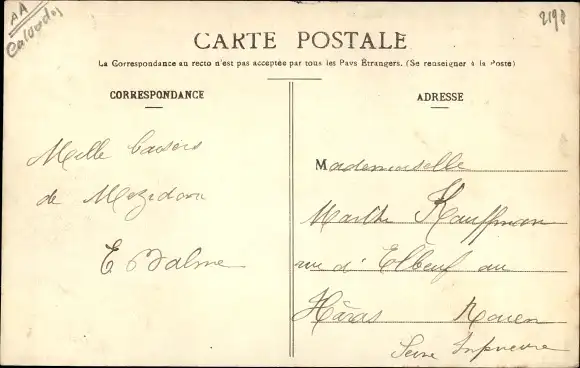 AA
Calvados
2198
CARTE POSTALE
La Correspondance au recto n'est pas acceptée par tous les Pays Étrangers. (Se renseigner à la Poste)
CORRESPONDANCE
Mille baisers
de Mezidon
E Balme
ADRESSE
Mademoiselle
Marthe Kauffman
rue d'Elbeuf au
Hâras Rouen
Seine Inférieure